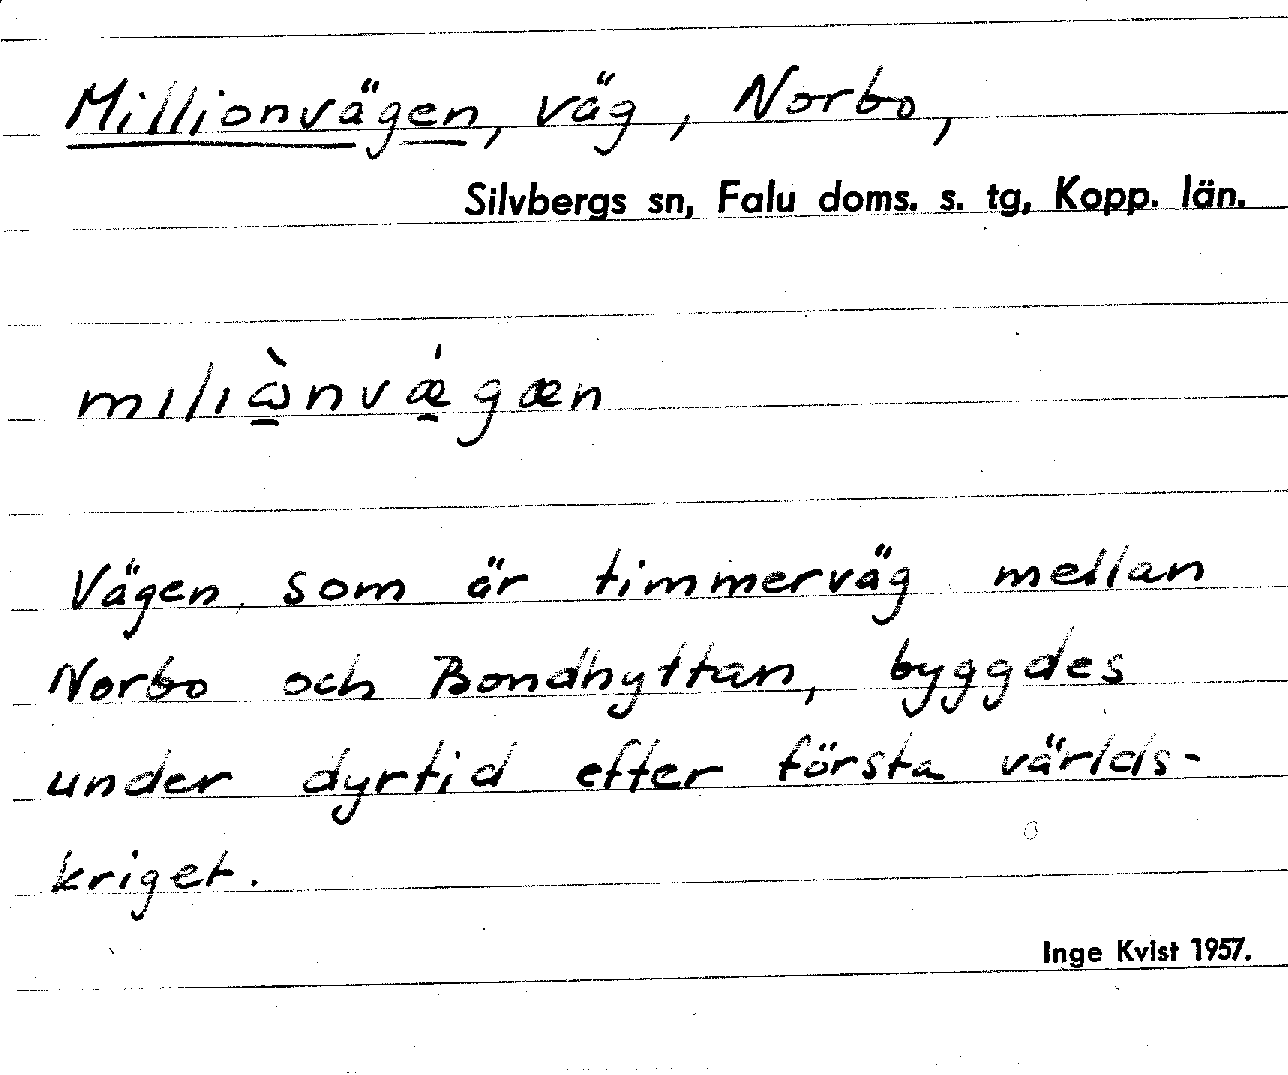 Millionvägen, väg, Norbo,
Silvbergs sn, Falu doms. s. tg, Kopp. län.
mılıὼ̱nvǽ̱gæn
Vägen som är timmerväg mellan
Norbo och Bondhyttan, byggdes
under dyrtid efter första världs-
kriget.
Inge Kvist 1957.